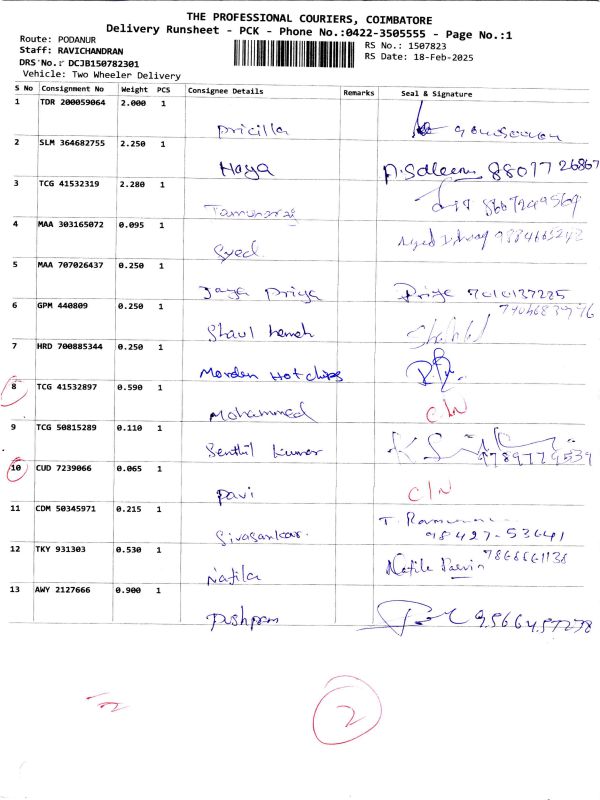 THE PROFESSIONAL COURIERS, COIMBATORE
Delivery Runsheet - PCK - Phone No.:0422-3505555 - Page No.:1
Route: PODANUR
RS No.: 1507823
Staff: RAVICHANDRAN
RS Date: 18-Feb-2025
DRS No.: DCJB150782301
Vehicle: Two Wheeler Delivery
S No Consignment No Weight PCS Consignee Details Remarks Seal & Signature
1 TDR 200059064 2.000 1
Pricilla
2 SLM 364682755 2.250 1
Haya A.Saleem 88077 26867
3 TCG 41532319 2.280 1
4 MAA 303165072 0.095 1
Syed
5 MAA 707026437 0.250 1
Jaya Priya Priya 7010137225
6 GPM 440809 0.250 1
7 HRD 700885344 0.250 1
Morden Hot chips
8 TCG 41532897 0.590 1
Mohammed C/N
9 TCG 50815289 0.110 1
Senthil Kumar 9789779539
10 CUD 7239066 0.065 1
Pavi C/N
11 CDM 50345971 0.215 1
Sivasankar. 98427-53641
12 TKY 931303 0.530 1
Nafila
13 AWY 2127666 0.900 1
Pushpam 9566457278
2